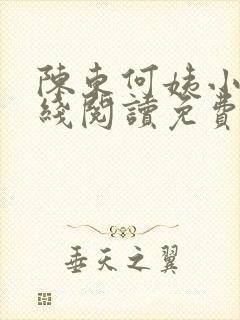 陳東何姨小
綫閱讀免費
垂天之翼